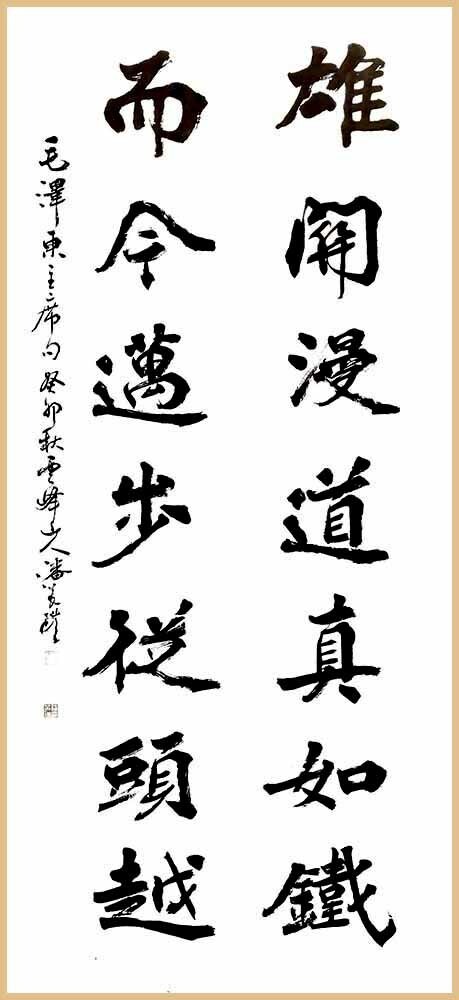 雄關漫道真如鐵
而今邁步從頭越
毛澤東主席句癸卯秋雲峰山人潘